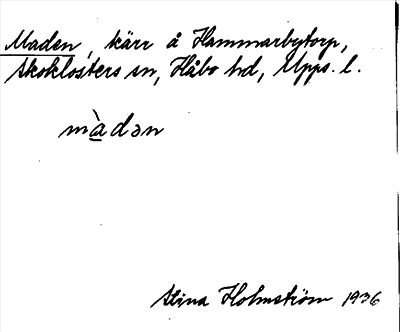 Maden, kärr å Hammarbytorp,
Skoklosters sn, Håbo hd, Upps. l.
mà̱dən
Stina Holmström 1936